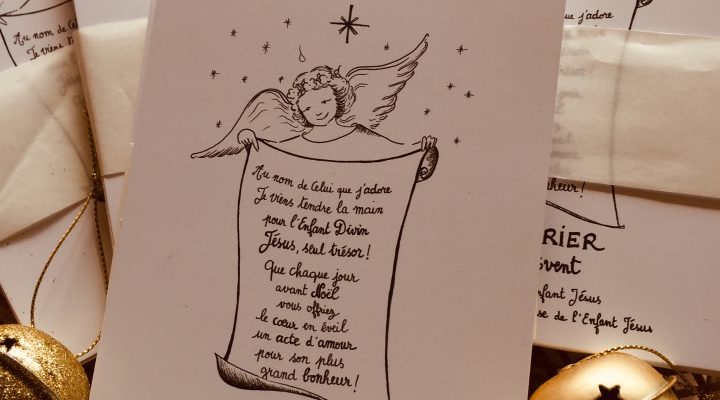 Au nom de Celui que j'adore
Je viens tendre la main
pour l'Enfant Divin
Jésus, seul trésor !
Que chaque jour
avant Noël
vous offriez
le cœur en éveil
un acte d'amour
pour son plus
grand bonheur !
Au nom de Celui
Je viens tendre
pour
Jésus
que j'adore
bonheur !
RIER
vent
nfant Jésus
se de l'Enfant Jésus